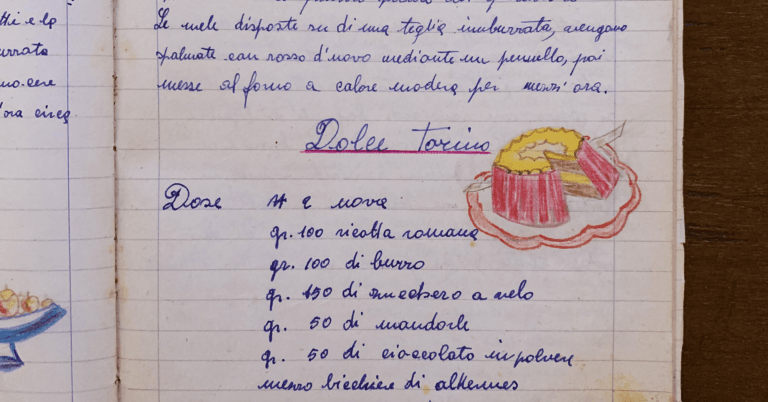 tti e la
urrata
no. cere
'ora circa
Le mele disposte su di una teglia imburrata, vengono
spalmate con rosso d'uovo mediante un pennello, poi
messe al forno a calore modera per mezz'ora.
Dolce Torino
Dose N 2 uova
gr. 100 ricotta romana
gr. 100 di burro
gr. 150 di zucchero a velo
gr. 50 di mandorle
gr. 50 di cioccolato in polvere
mezzo bicchiere di alkermes